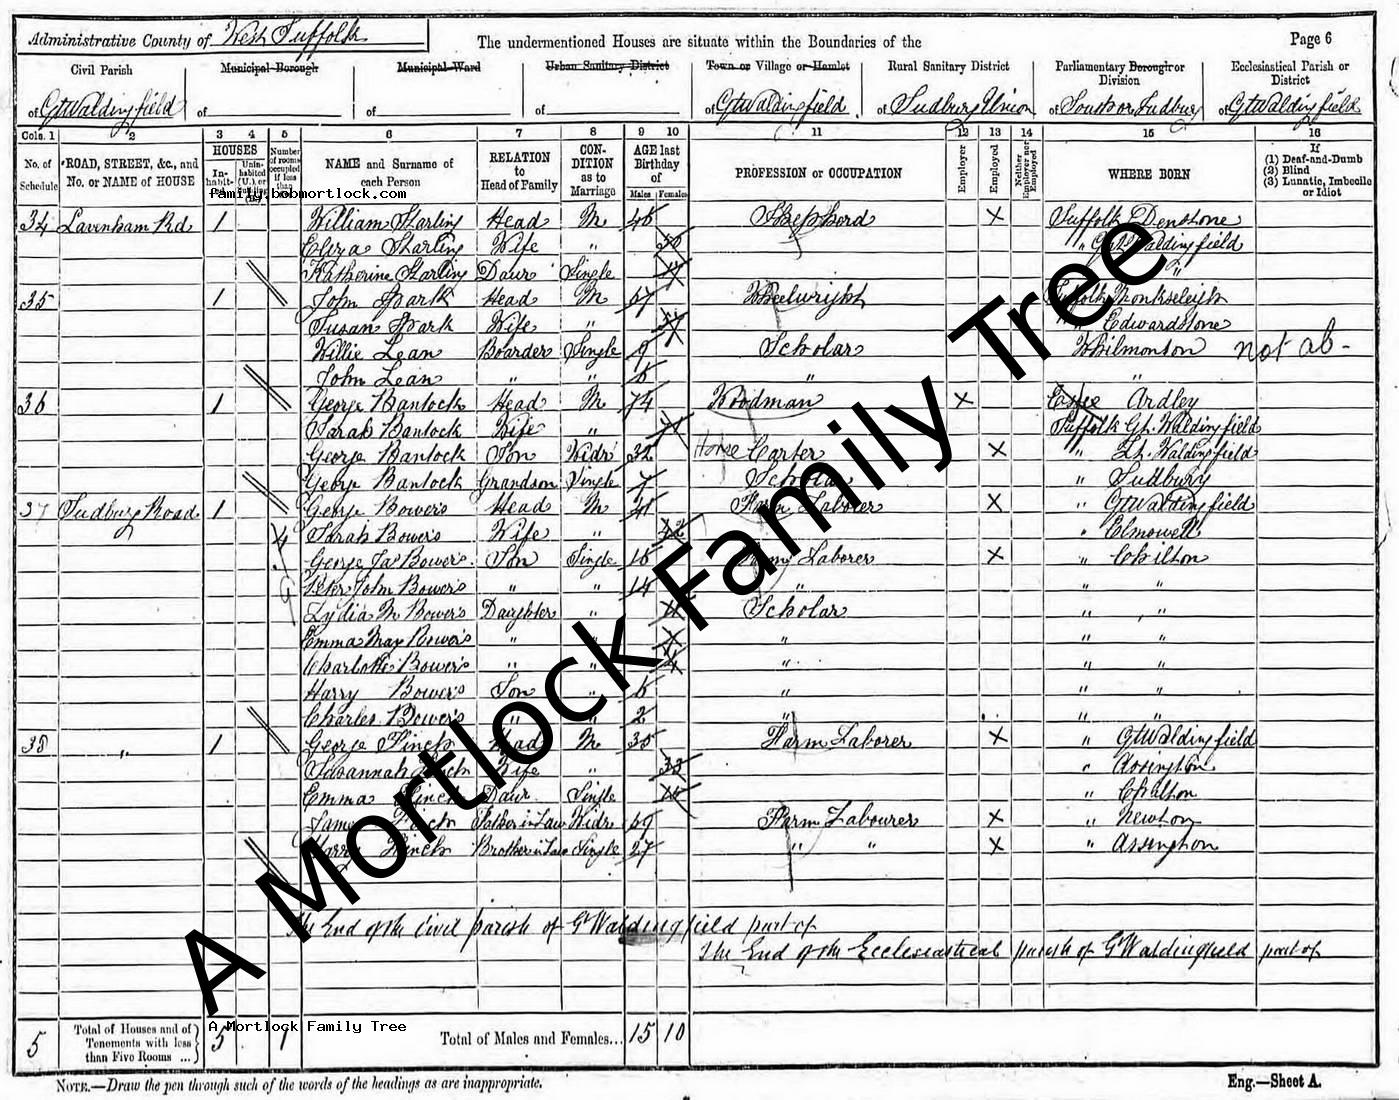 Administrative County of West Suffolk
The undermentioned Houses are situate within the Boundaries of the
Page 6
Civil Parish Municipal Borough Municipal Ward Urban Sanitary District Town or Village or Hamlet Rural Sanitary District Parliamentary Borough or Division Ecclesiastical Parish or District
of Gt Waldingfield of of of of Gt Waldingfield of Sudbury Union of South or Sudbury of Gt Waldingfield
Cols. 1 2 3 4 5 6 7 8 9 10 11 12 13 14 15 16
No. of Schedule ROAD, STREET, &c., and No. or NAME of HOUSE HOUSES In-habit- Unin-habited Number of rooms occupied if less than NAME and Surname of each Person RELATION to Head of Family CON-DITION as to Marriage AGE last Birthday of Males Females PROFESSION or OCCUPATION Employer Employed Neither Employer nor Employed WHERE BORN If (1) Deaf-and-Dumb (2) Blind (3) Lunatic, Imbecile or Idiot
family.bobmortlock.com
34 Lavenham Rd 1 William Starling Head M 46 Shepherd X Suffolk Denstone
Eliza Starling Wife " 50 " Gt Waldingfield
Katherine Starling Daur Single "
35 1 John Spark Head M 67 Wheelwright Suffolk Monkseleigh
Susan Spark Wife " " Edwardstone
Willie Lean Boarder Single 9 Scholar Whilmonton not ab-
John Lean " " 6 " "
36 1 George Bantock Head M 74 Woodman X Essex Ardley
Sarah Bantock Wife " Suffolk Gt. Waldingfield
George Bantock Son Widr 32 Horse Carter X " Lt. Waldingfield
George Bantock Grandson Single 7 Scholar " Sudbury
37 Sudbury Road 1 George Bowers Head M 41 Farm Laborer X " Gt Waldingfield
4 Sarah Bowers Wife " 42 " Elmswell
George Jas Bowers Son Single 16 Farm Laborer X " Chilton
Peter John Bowers " " 14 " " "
Lydia M Bowers Daughter " 11 Scholar " "
Emma May Bowers " " " " "
Charlotte Bowers " " " " "
Harry Bowers Son " 6 " " "
Charles Bowers " " 2 " " "
38 " 1 George Finch Head M 35 Farm Laborer X " Gt Waldingfield
Susannah Finch Wife " 33 " Assington
Emma Finch Daur Single " Chilton
James Finch Father in Law Widr 69 Farm Labourer X " Newton
Harry Finch Brother in Law Single 27 " " X " Assington
The End of the Civil parish of Gt Waldingfield part of
The End of the Ecclesiastical parish of Gt Waldingfield part of
A Mortlock Family Tree
A Mortlock Family Tree
5 Total of Houses and of Tenements with less than Five Rooms ... 5 1 Total of Males and Females... 15 10
NOTE.—Draw the pen through such of the words of the headings as are inappropriate.
Eng.—Sheet A.